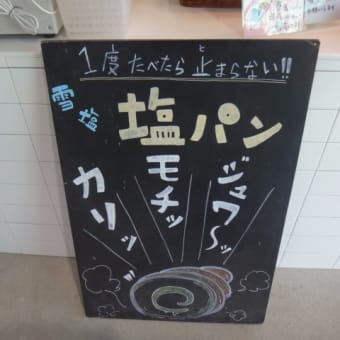 1度たべたら止まらない!!
と
雪塩
塩パン
ジュワ〜ッ
モチッ
カリッ